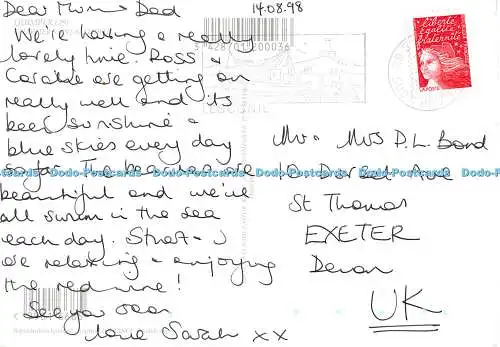 Dear Mum & Dad
14.08.98
We're having a really
lovely time. Ross &
Caroline are getting on
really well and its
been sunshine &
blue skies every day
so far. The beaches are
beautiful and we've
all swum in the sea
each day. Stuart & I
are relaxing & enjoying
the red wine!
See you soon
love Sarah xx
QUIMPER (29)
4287012 200036
LESCONIL
Liberté
égalité
fraternité
LA POSTE
Mr & Mrs D.L. Bond
Dorset Ave
St Thomas
EXETER
Devon
UK
Dodo-Postcards Dodo-Postcards Dodo-Postcards Dodo-Postcards
Dodo-Postcards Dodo-Postcards Dodo-Postcards Dodo-Postcards